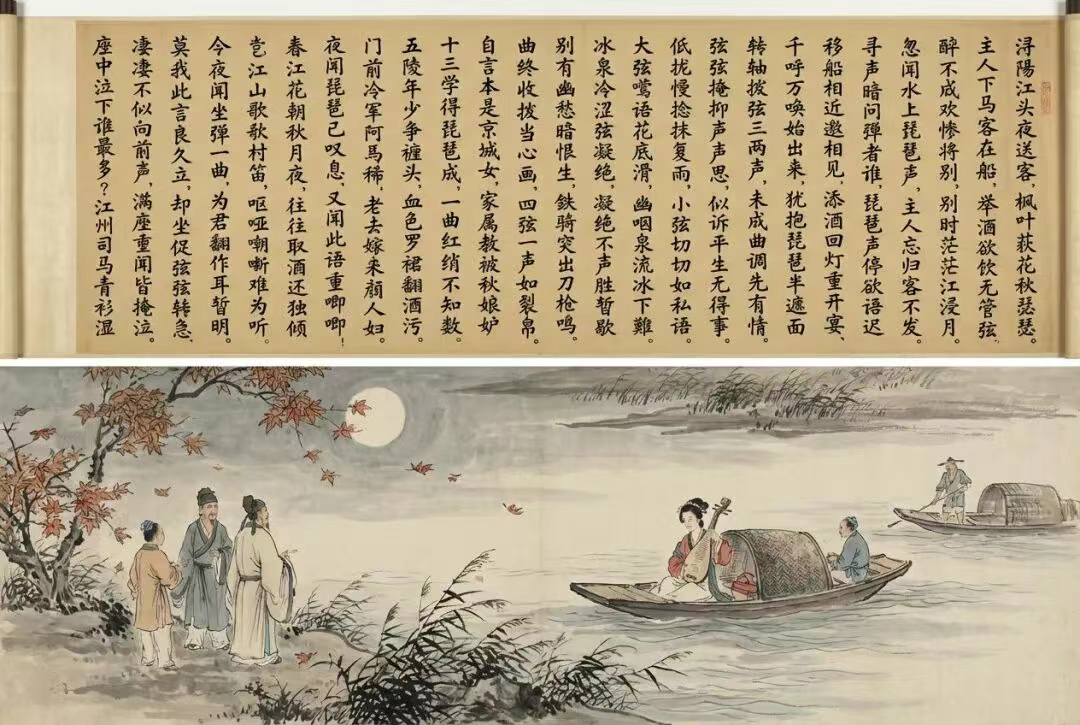 浔陽江头夜送客，枫叶荻花秋瑟瑟。
主人下马客在船，举酒欲飲无管弦，
醉不成欢惨将别，别时茫茫江浸月。
忽闻水上琵琶声，主人忘归客不发。
寻声暗问弹者谁，琵琶声停欲语迟
移船相近邀相见，添酒回灯重开宴、
千呼万唤始出来，犹抱琵琶半遮面
转轴拨弦三两声，未成曲调先有情。
弦弦掩抑声声思，似诉平生无得事。
低拢慢捻抹复雨，小弦切切如私语。
大弦语花底滑，幽咽泉流冰下難。
冰泉冷涩弦凝绝，凝绝不声胜暂歇
别有幽愁暗恨生，鉄骑突出刀枪鸣。
曲终收拨当心画，四弦一声如裂帛。
自言本是京城女，家属教被秋娘妒
十三学得琵琶成，一曲红绡不知数。
五陵年少争缠头，血色罗裙翻酒污。
门前冷军阿馬稀，老去嫁来颜人妇。
夜闻琵琶己叹息，又闻此语重唧唧！
春江花朝秋月夜，往往取酒还独倾
岂江山歌歌村笛，呕哑嘲哳难为听。
今夜闻坐弹一曲，为君翻作耳暂明。
莫我此言良久立，却坐促弦弦转急、
凄凄不似向前声，满座重闻皆掩泣。
座中泣下谁最多？江州司马青衫湿